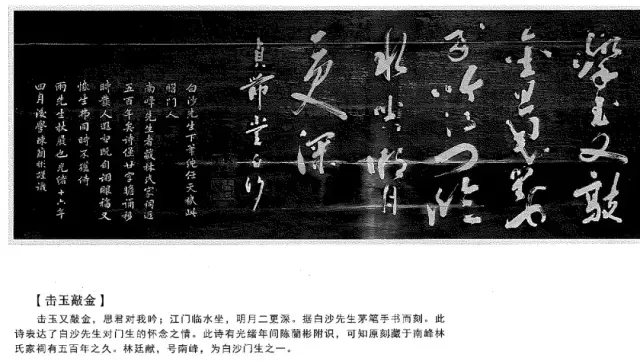 擊玉又敲
金思君對
我吟江門臨
水坐明月
二更深
貞節堂白沙
白沙先生下筆純任天機此
門人
南峰先生者藏林氏家祠逾
五百年矣詩僅廿字瞻誦移
時既自詡眼福又
生弗同時不獲侍
兩先生杖屨也光緒十六年
四月後學陳蘭彬謹識
【击玉敲金】
击玉又敲金，思君对我吟；江门临水坐，明月二更深。据白沙先生茅笔手书而刻。此
诗表达了白沙先生对门生的怀念之情。此诗有光绪年间陈蘭彬附识，可知原刻藏于南峰林
氏家祠有五百年之久。林廷献，号南峰，为白沙门生之一。